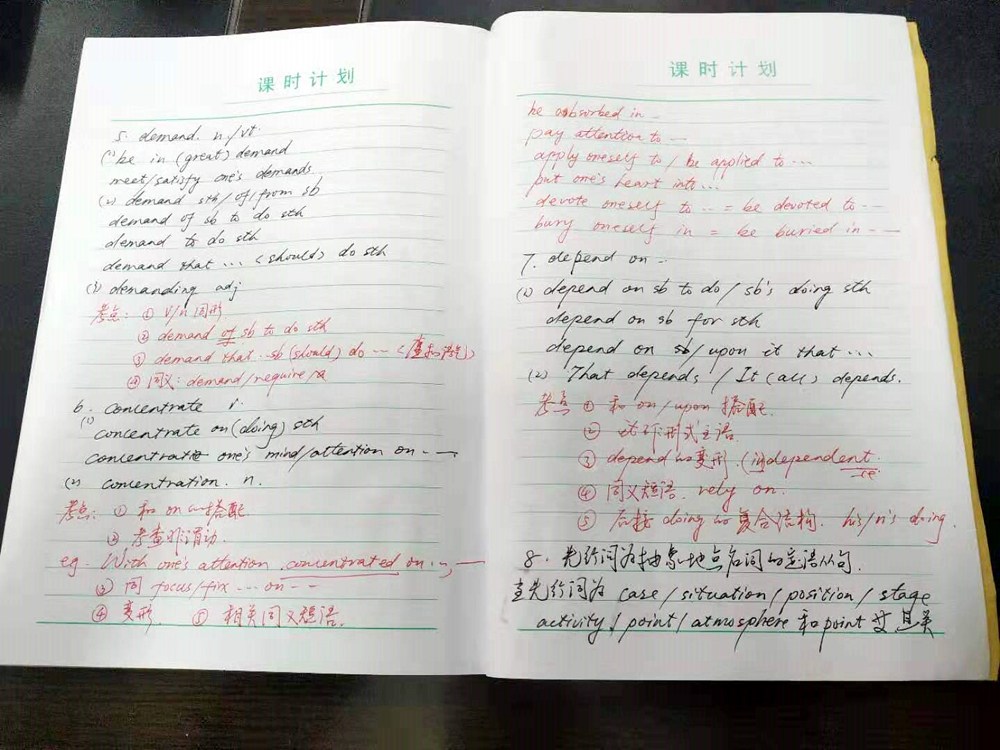 课时计划
5. demand. n./vt.
(1) be in (great) demand
meet/satisfy one's demands
(2) demand sth/of/from sb
demand of sb to do sth
demand to do sth
demand that ... (should) do sth
(3) demanding adj
考点: ① v/n 同形
② demand of sb to do sth
③ demand that .. sb (should) do ... (虚拟语气)
④ 同义: demand/require/
6. concentrate
(1)
concentrate on (doing) sth
concentrate one's mind/attention on ...
(2) concentration. n.
考点: ① 和 on 的搭配
② 考查非谓动.
eg. With one's attention concentrated on ...,
③ 同 focus/fix ... on ...
④ 变形. ⑤ 相关同义短语.
课时计划
be absorbed in ..
pay attention to ...
apply oneself to / be applied to ...
put one's heart into ...
devote oneself to ... = be devoted to ...
bury oneself in = be buried in ...
7. depend on ..
(1) depend on sb to do / sb's doing sth
depend on sb for sth
depend on /upon it that ...
(2) That depends / It (all) depends.
考点 ① 和 on/upon 搭配.
② it 形式主语.
③ depend 的变形. (in)dependent.
ce
④ 同义短语. rely on.
⑤ 后接 doing 的复合结构. his/n's doing.
8. 先行词为抽象地点名词的定语从句.
当先行词为 case / situation / position / stage
activity / point / atmosphere 和 point